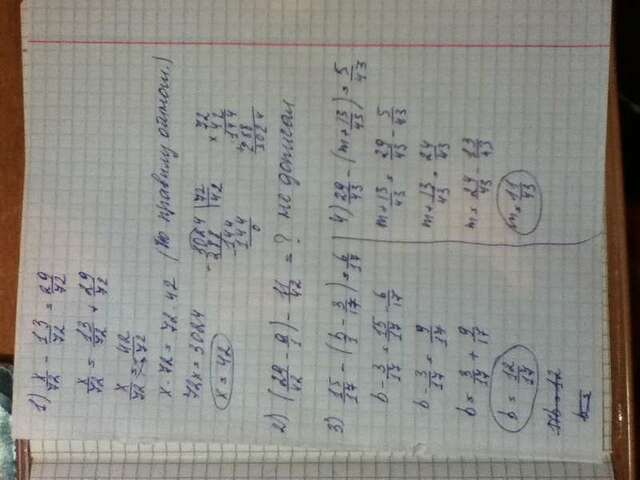 1) x/72 - 13/72 = 29/72
x/72 = 13/72 + 29/72
x/72 = 42/72
x · 72 = 72 · 42 (по правилу отнош.)
72x = 3024
x = 42
3024 | 72
288 | 42
144
144
0
72
× 42
144
288
3024
2) (29/42 - a/1) - 11/42 = ? не дописал
3) 15/17 - (b/1 - 3/17) = 6/17
b - 3/17 = 15/17 - 6/17
b - 3/17 = 9/17
b = 3/17 + 9/17
b = 12/17
17b = 12
b =
4) 29/43 - (m + 13/43) = 5/43
m + 13/43 = 29/43 - 5/43
m + 13/43 = 24/43
m = 24/43 - 13/43
m = 11/43